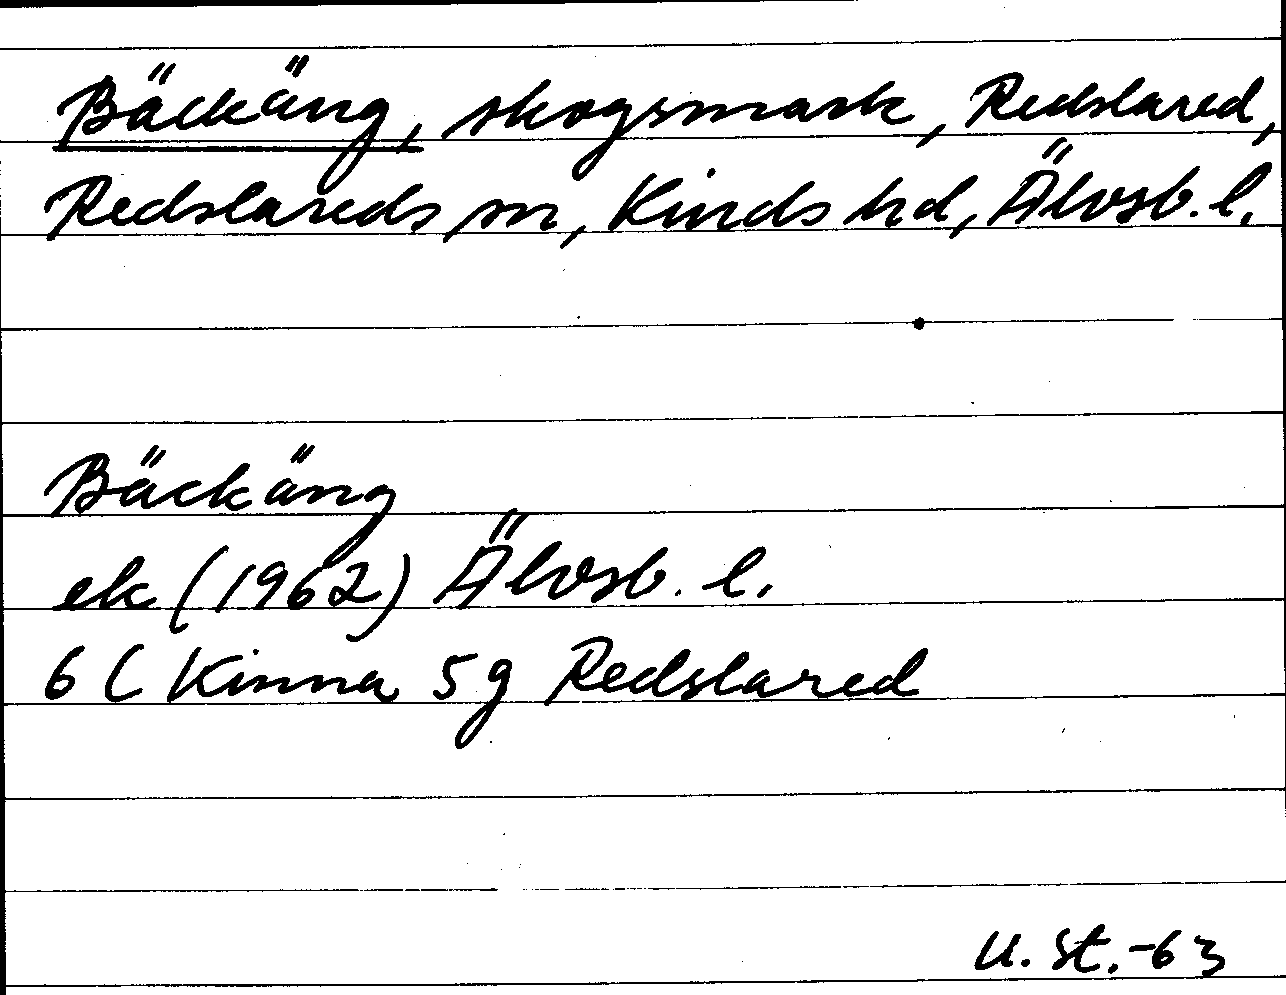 Bäckäng, skogsmark, Redslared,
Redslareds sn, Kinds hd, Älvsb. l.
Bäckäng
ek (1962) Älvsb. l.
6 C Kinna 5 g Redslared
U. St. -63